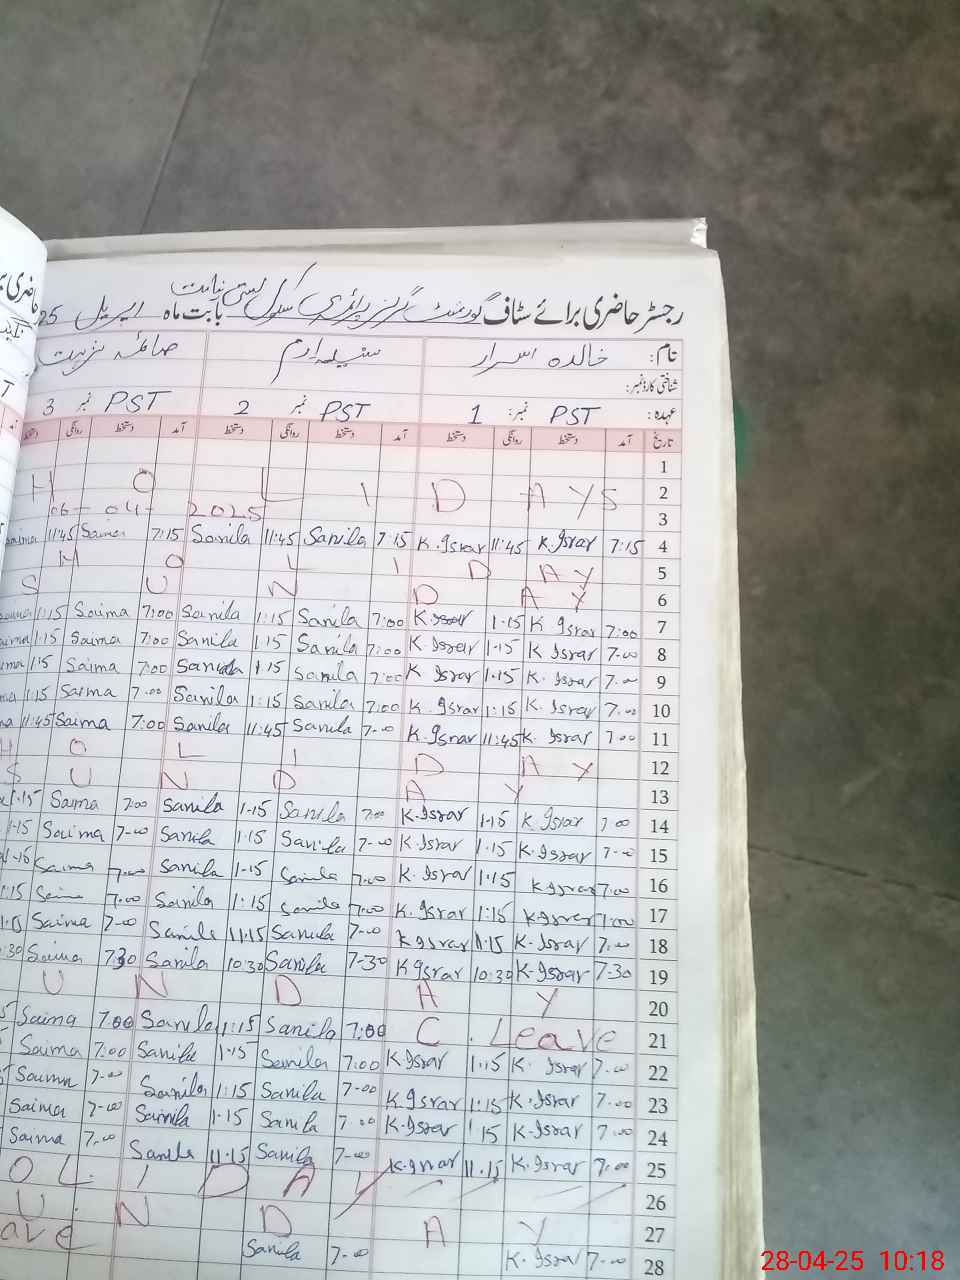 رجسٹر حاضری برائے سٹاف گورنمنٹ گرلز پرائمری سکول بستی بابت ماہ اپریل 25
نام: خالدہ اسرار سنیلہ ارم صائمہ
شناختی کارڈ نمبر:
عہدہ: PST نمبر: 1 PST نمبر 2 PST نمبر 3
تاریخ آمد دستخط روانگی دستخط آمد دستخط روانگی دستخط آمد دستخط روانگی دستخط
1
H O L I D A Y S 2
06-04-2025 3
11:45 Saima 7:15 Sanila 11:45 Sanila 7:15 K.Israr 11:45 K.Israr 7:15 4
H O L I D A Y 5
S U N D A Y 6
1:15 Saima 7:00 Sanila 1:15 Sanila 7:00 K.Israr 1-15 K Israr 7:00 7
1-15 Saima 7:00 Sanila 1:15 Sanila 7:00 K Israr 1-15 K Israr 7-00 8
1:15 Saima 7:00 Sanila 1:15 Sanila 7:00 K Israr 1:15 K. Israr 7-00 9
1:15 Saima 7-00 Sanila 1:15 Sanila 7:00 K.Israr 1:15 K. Israr 7-00 10
11:45 Saima 7:00 Sanila 11:45 Sanila 7-00 K.Israr 11:45 K. Israr 7 00 11
H O L I D A Y 12
S U N D A Y 13
1-15 Saima 7:00 Sanila 1-15 Sanila 7:00 K.Israr 1-15 K.Israr 7 00 14
1-15 Saima 7-00 Sanila 1-15 Sanila 7-00 K.Israr 1.15 K.Israr 7-00 15
1-15 Saima 7-00 Sanila 1-15 Sanila 7:00 K. Israr 1.15 K Israr 7:00 16
1:15 Saima 7:00 Sanila 1:15 Sanila 7:00 K. Israr 1:15 K Israr 7:00 17
Saima 7-00 Sanila 11:15 Sanila 7-00 K Israr 11.15 K. Israr 7:00 18
:30 Saima 7:30 Sanila 10:30 Sanila 7-30 K Israr 10:30 K-Israr 7-30 19
U N D A Y 20
5 Saima 7:00 Sanila 1:15 Sanila 7:00 C. Leave 21
Saima 7:00 Sanila 1-15 Sanila 7:00 K.Israr 1.15 K. Israr 7-00 22
Saima 7-00 Sanila 1:15 Sanila 7-00 K.Israr 1:15 K.Israr 7.00 23
Saima 7-00 Sanila 1-15 Sanila 7:00 K-Israr 15 K-Israr 7:00 24
Saima 7:00 Sanila 11.15 Sanila 7-00 K.Israr 11.15 K.Israr 7:00 25
O L I D A Y 26
U N D A Y 27
ave Sanila 7-00 K.Israr 7-00 28
28-04-25 10:18